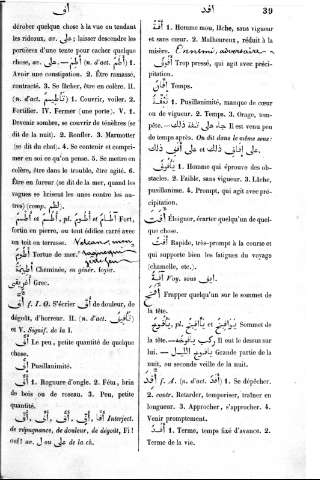 أف
افد
39
dérober quelque chose à la vue en tendant
les rideaux, av. على; laisser descendre les
portières d'une tente pour cacher quelque
chose, av. على. — أَطَمَ (n. d'act. أَطْم) 1.
Avoir une constipation. 2. Être ramassé,
contracté. 3. Se lâcher, être en colère. II.
(n. d'act. تَأْطِيم) 1. Couvrir, voiler. 2.
Fortifier. IV. Fermer (une porte). V. 1.
Devenir sombre, se couvrir de ténèbres (se
dit de la nuit). 2. Ronfler. 3. Marmotter
(se dit du chat). 4. Se contenir et compri-
mer en soi ce qu'on pense. 5. Se mettre en
colère, être dans le trouble, être agité. 6.
Être en fureur (se dit de la mer, quand les
vagues se brisent les unes contre les au-
tres) (comp. لطم).
أُطْم et أُطُم, pl. أُطُوم et آطَام Fort,
fortin en pierre, ou tout édifice carré avec
un toit en terrasse.
أَطُوم Tortue de mer.
أَطِيمَة Cheminée, en génér. foyer.
اغريقى Grec.
أَفَّ f. I. O. S'écrier أف de douleur, de
dégoût, d'horreur. II. (n. d'act. تَأْفِيف)
et V. Signif. de la I.
أف Le peu, petite quantité de quelque
chose.
أف Pusillanimité.
أف 1. Rognure d'ongle. 2. Fétu, brin
de bois ou de roseau. 3. Peu, petite
quantité.
أُفٍّ, أُفِّ, أُفَّ, أُفُّ, أُفًّا Interject.
de répugnance, de douleur, de dégoût, Fi !
ouf! av. ل ou على de la ch.
1. Homme mou, lâche, sans vigueur
et sans cœur. 2. Malheureux, réduit à la
misère. Ennemi, adversaire
أَفُوف Trop pressé, qui agit avec préci-
pitation.
Temps.
1. Pusillanimité, manque de cœur
ou de vigueur. 2. Temps. 3. Orage, tem-
pête. — جاء على تفئة ذلك Il est venu peu
de temps après. On dit dans le même sens:
على إفان ذلك et على أفف ذلك.
يَأْفُوف 1. Homme qui éprouve des ob-
stacles. 2. Faible, sans vigueur. 3. Lâche,
pusillanime. 4. Prompt, qui agit avec pré-
cipitation.
أَفَتَ Éloigner, écarter quelqu'un de quel-
que chose.
أفت Rapide, très-prompt à la course et
qui supporte bien les fatigues du voyage
(chamelle, etc.).
آفة Voy. sous أوف.
أَفَخَ Frapper quelqu'un sur le sommet de
la tête.
يَأْفُوخ, pl. يَآفِيخ et يَوَافِيخ Sommet de
la tête. — ركب يافوخه Il eut le dessus sur
lui. — يافوخ الليل Grande partie de la
nuit, ou seconde veille de la nuit.
أَفِدَ f. A. (n. d'act. أَفَد) 1. Se dépêcher.
2. contr. Retarder, temporiser, traîner en
longueur. 3. Approcher, s'approcher. 4.
Venir promptement.
أَفَد 1. Terme, temps fixé d'avance. 2.
Terme de la vie.